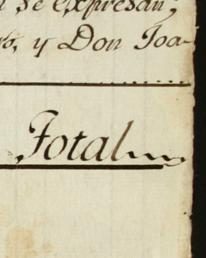 se expresan,
y Don Joa-
Total